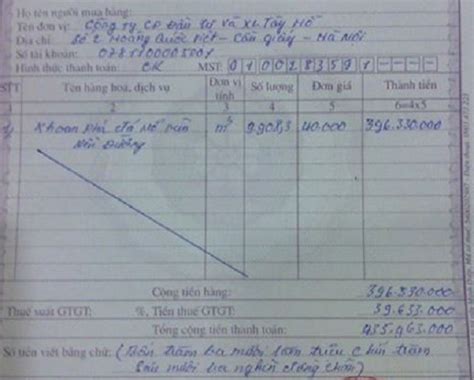 Họ tên người mua hàng:
Tên đơn vị: Công ty CP Đầu tư và XL Tây Hồ
Địa chỉ: Số 2 Hoàng Quốc Việt - Cầu giấy - Hà Nội
Số tài khoản:
Hình thức thanh toán: CK MST: 0 1 0 0 2 8 3 5 9
STT Tên hàng hoá, dịch vụ Đơn vị tính Số lượng Đơn giá Thành tiền
2 3 4 5 6=4x5
Khoan phá đá nổ mìn m3 9.908,3 40.000 396.330.000
Nền Đường
Cộng tiền hàng: 396.330.000
Thuế suất GTGT: %, Tiền thuế GTGT: 39.633.000
Tổng cộng tiền thanh toán: 435.963.000
Số tiền viết bằng chữ: (Bốn trăm ba mươi lăm triệu chín trăm
Sáu mươi ba nghìn đồng chẵn)